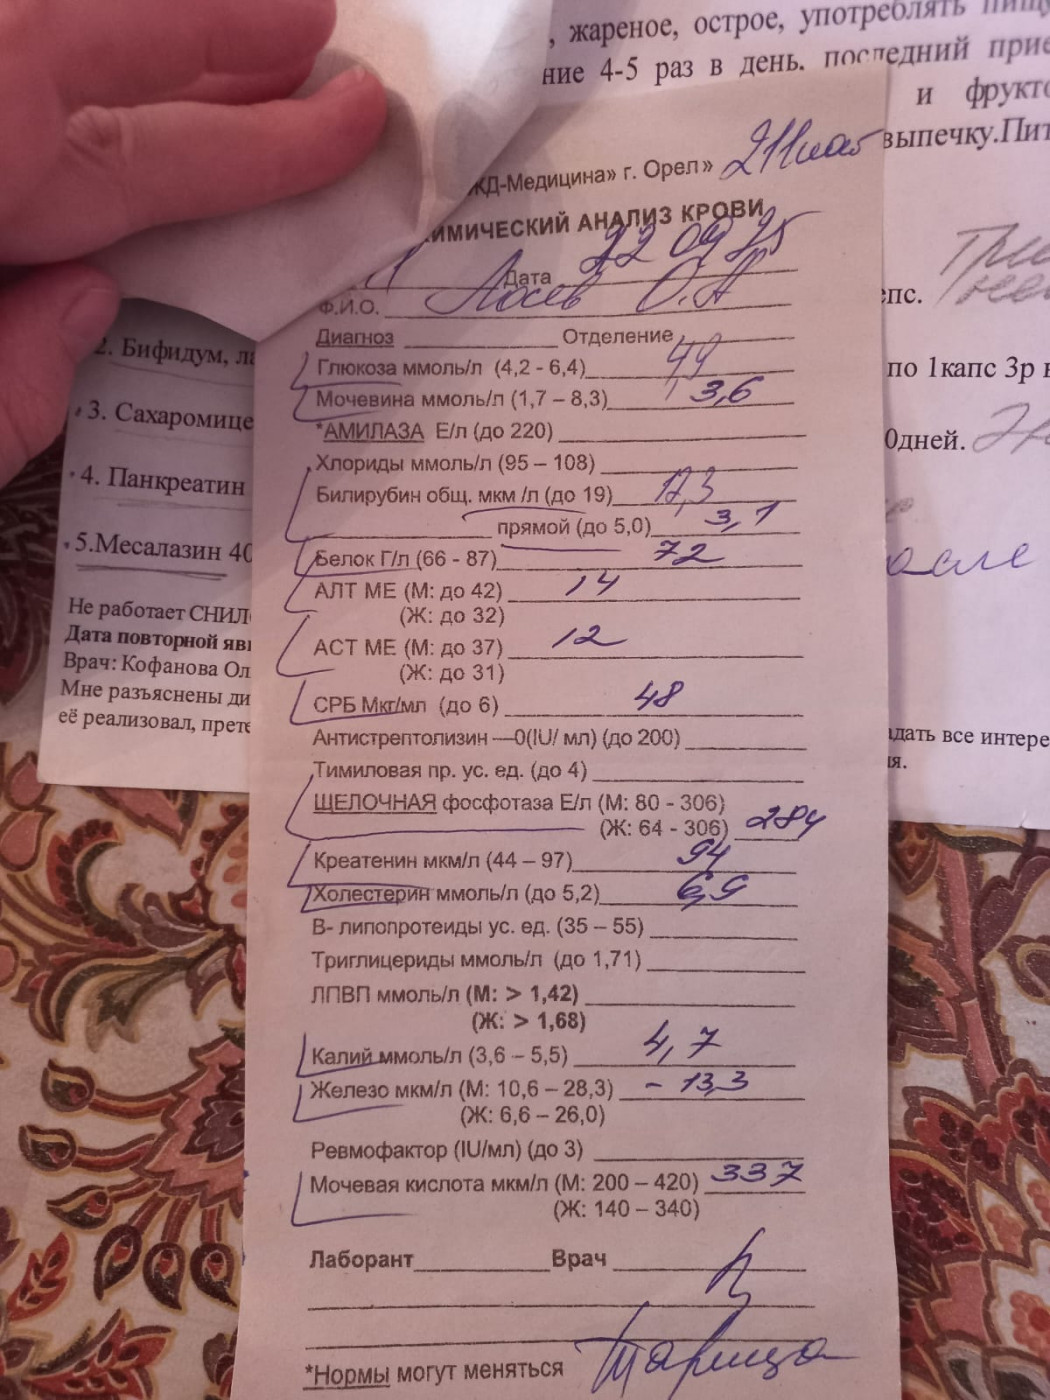 , жареное, острое, употреблять пищу
ние 4-5 раз в день. последний прие
и фрукто
выпечку.Пит
ЖД-Медицина» г. Орел»
ХИМИЧЕСКИЙ АНАЛИЗ КРОВИ
Дата 22 09 25
Ф.И.О. Лосев О.А
Диагноз Отделение
Глюкоза ммоль/л (4,2 - 6,4)
Мочевина ммоль/л (1,7 – 8,3) 3,6
*АМИЛАЗА Е/л (до 220)
Хлориды ммоль/л (95 – 108)
Билирубин общ. мкм /л (до 19) 17,3
прямой (до 5,0) 3,1
Белок Г/л (66 - 87) 72
АЛТ МЕ (М: до 42) 14
(Ж: до 32)
АСТ МЕ (М: до 37) 12
(Ж: до 31)
СРБ Мкг/мл (до 6) 48
Антистрептолизин —0(IU/ мл) (до 200)
Тимиловая пр. ус. ед. (до 4)
ЩЕЛОЧНАЯ фосфотаза Е/л (М: 80 - 306)
(Ж: 64 - 306) 284
Креатенин мкм/л (44 – 97) 94
Холестерин ммоль/л (до 5,2)
В- липопротеиды ус. ед. (35 – 55)
Триглицериды ммоль/л (до 1,71)
ЛПВП ммоль/л (М: > 1,42)
(Ж: > 1,68)
Калий ммоль/л (3,6 – 5,5) 4,7
Железо мкм/л (М: 10,6 – 28,3) - 13,3
(Ж: 6,6 – 26,0)
Ревмофактор (IU/мл) (до 3)
Мочевая кислота мкм/л (М: 200 – 420) 337
(Ж: 140 – 340)
Лаборант Врач
*Нормы могут меняться
2. Бифидум, ла
3. Сахаромице
4. Панкреатин
5.Месалазин 40
Не работает СНИЛ
Дата повторной яви
Врач: Кофанова Ол
Мне разъяснены ди
её реализовал, прете
епс.
по 1капс 3р в
0дней.
после
адать все интере
ия.